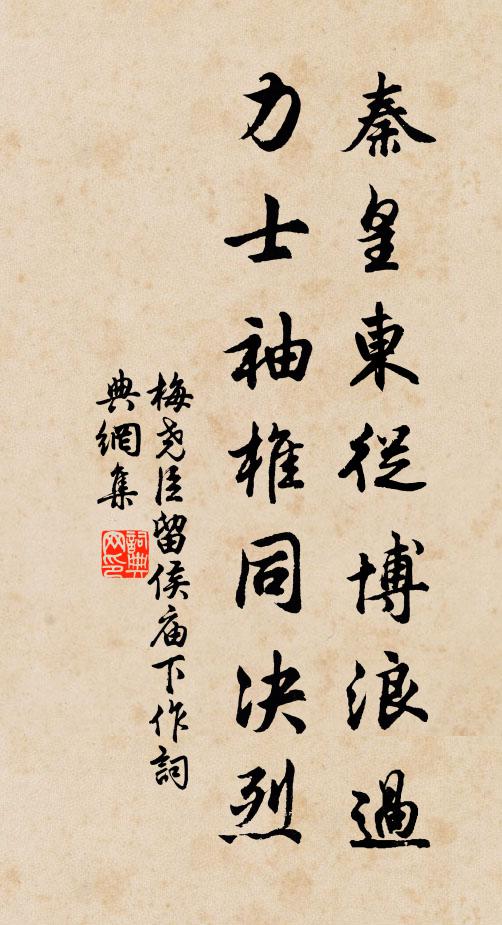 秦皇東従博浪過
力士袖椎同决烈
梅尧臣留侯庙下作詞
典網集
詞典
网印